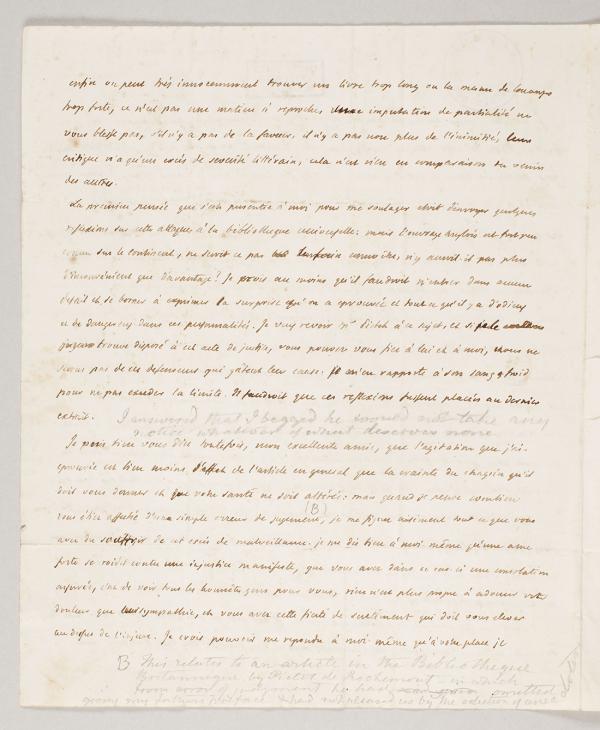 enfin on peut très innocemment trouver un livre trop long ou la manie de louange
trop forte, ce n'est pas une matière à reproches, une imputation de partialité ne
vous blesse pas, s'il n'y a pas de la faveur, il n'y a pas non plus de l'inimitié, leur
critique n'a qu'un excès de sévérité littéraire, cela n'est rien en comparaison du venin
des autres.
La première pensée que s'est présentée à moi pour me soulager étoit d'envoyer quelques
réflexions sur cette attaque à la bibliothèque universelle: mais l'ouvrage anglois est fort peu
connu sur le continent, ne seroit ce pas le faire connoître, n'y auroit il pas plus
d'inconvénient que d'avantage? Je crois au moins qu'il faudroit n'entrer dans aucun
détail et se borner à exprimer la surprise qu'on a éprouvée et tout ce qu'il y a d'odieux
et de dangereux dans ces personnalités. Je vais revoir Mr Pictet à ce sujet, et si
trouve disposé à cet acte de justice, vous pouvez vous fier à lui et à moi, nous ne
serons pas de ces défenseurs qui gâtent leur cause. Je m'en rapporte à son sang froid
pour ne pas excéder la limite. Il faudroit que ces réflexions fussent placées au dernier
extrait. I answered that I begged he would not take any
notice whatever of what deserves none
Je puis bien vous dire toutefois, mon excellente amie, que l'agitation que j'ai
éprouvée est bien moins l'effet de l'article en général que la crainte du chagrin qu'il
doit vous donner et que votre santé ne soit altérée: mais quand je pense combien
vous étiez affectée d'une simple erreur de jugement, (B) je me figure aisément tout ce que vous
avez du souffrir de cet excès de malveillance. je me dis bien à moi même qu'une ame
forte se roidit contre une injustice manifeste, que vous avez dans ce cas ci une consolation
assurée, c'est de voir tous les honnêtes gens pour vous, rien n'est plus propre à adoucir votre
douleur que leur sympathie, et vous avez cette fierté de sentiment qui doit vous élever
au dessus de l'injure. Je crois pouvoir me répondre à moi même qu'à votre place je
B This relates to an article in the Bibliotheque
Britannique by Pictet de Rochemont - in which
from error of judgment he had omitted
giving my fathers preface & had not pleased us by the selection of